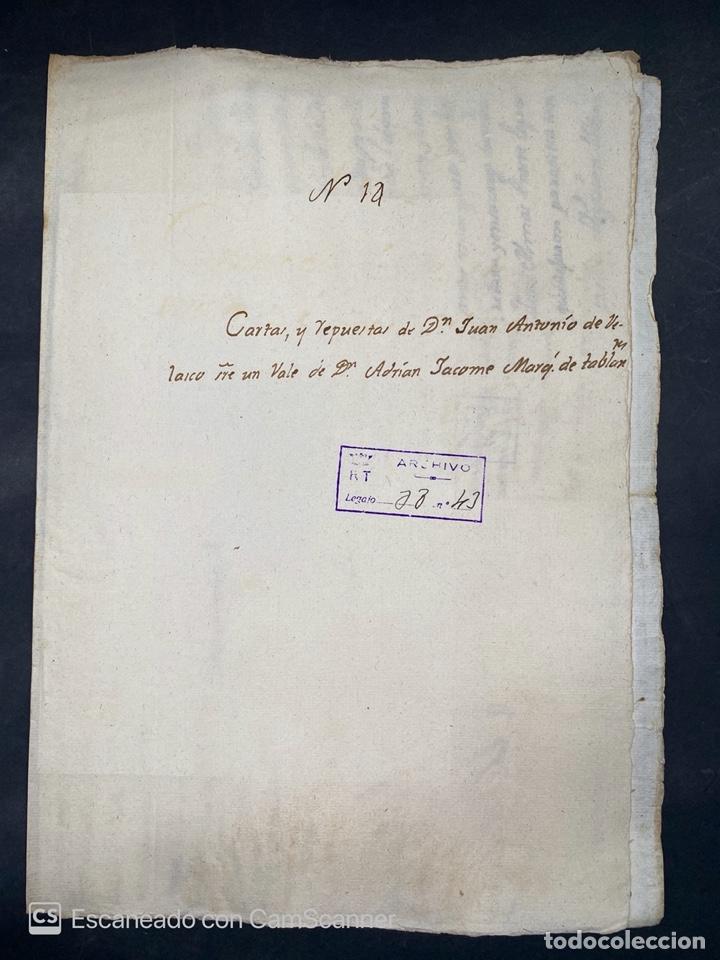 Nº 12
Cartas, y repuestas de Dn. Juan Antonio de Ve-
lasco sre un Vale de Dn. Adrian Jacome Marq. de tablan
tes
ARCHIVO
RT
Legajo 28 nº 43
CS Escaneado con CamScanner
todocoleccion